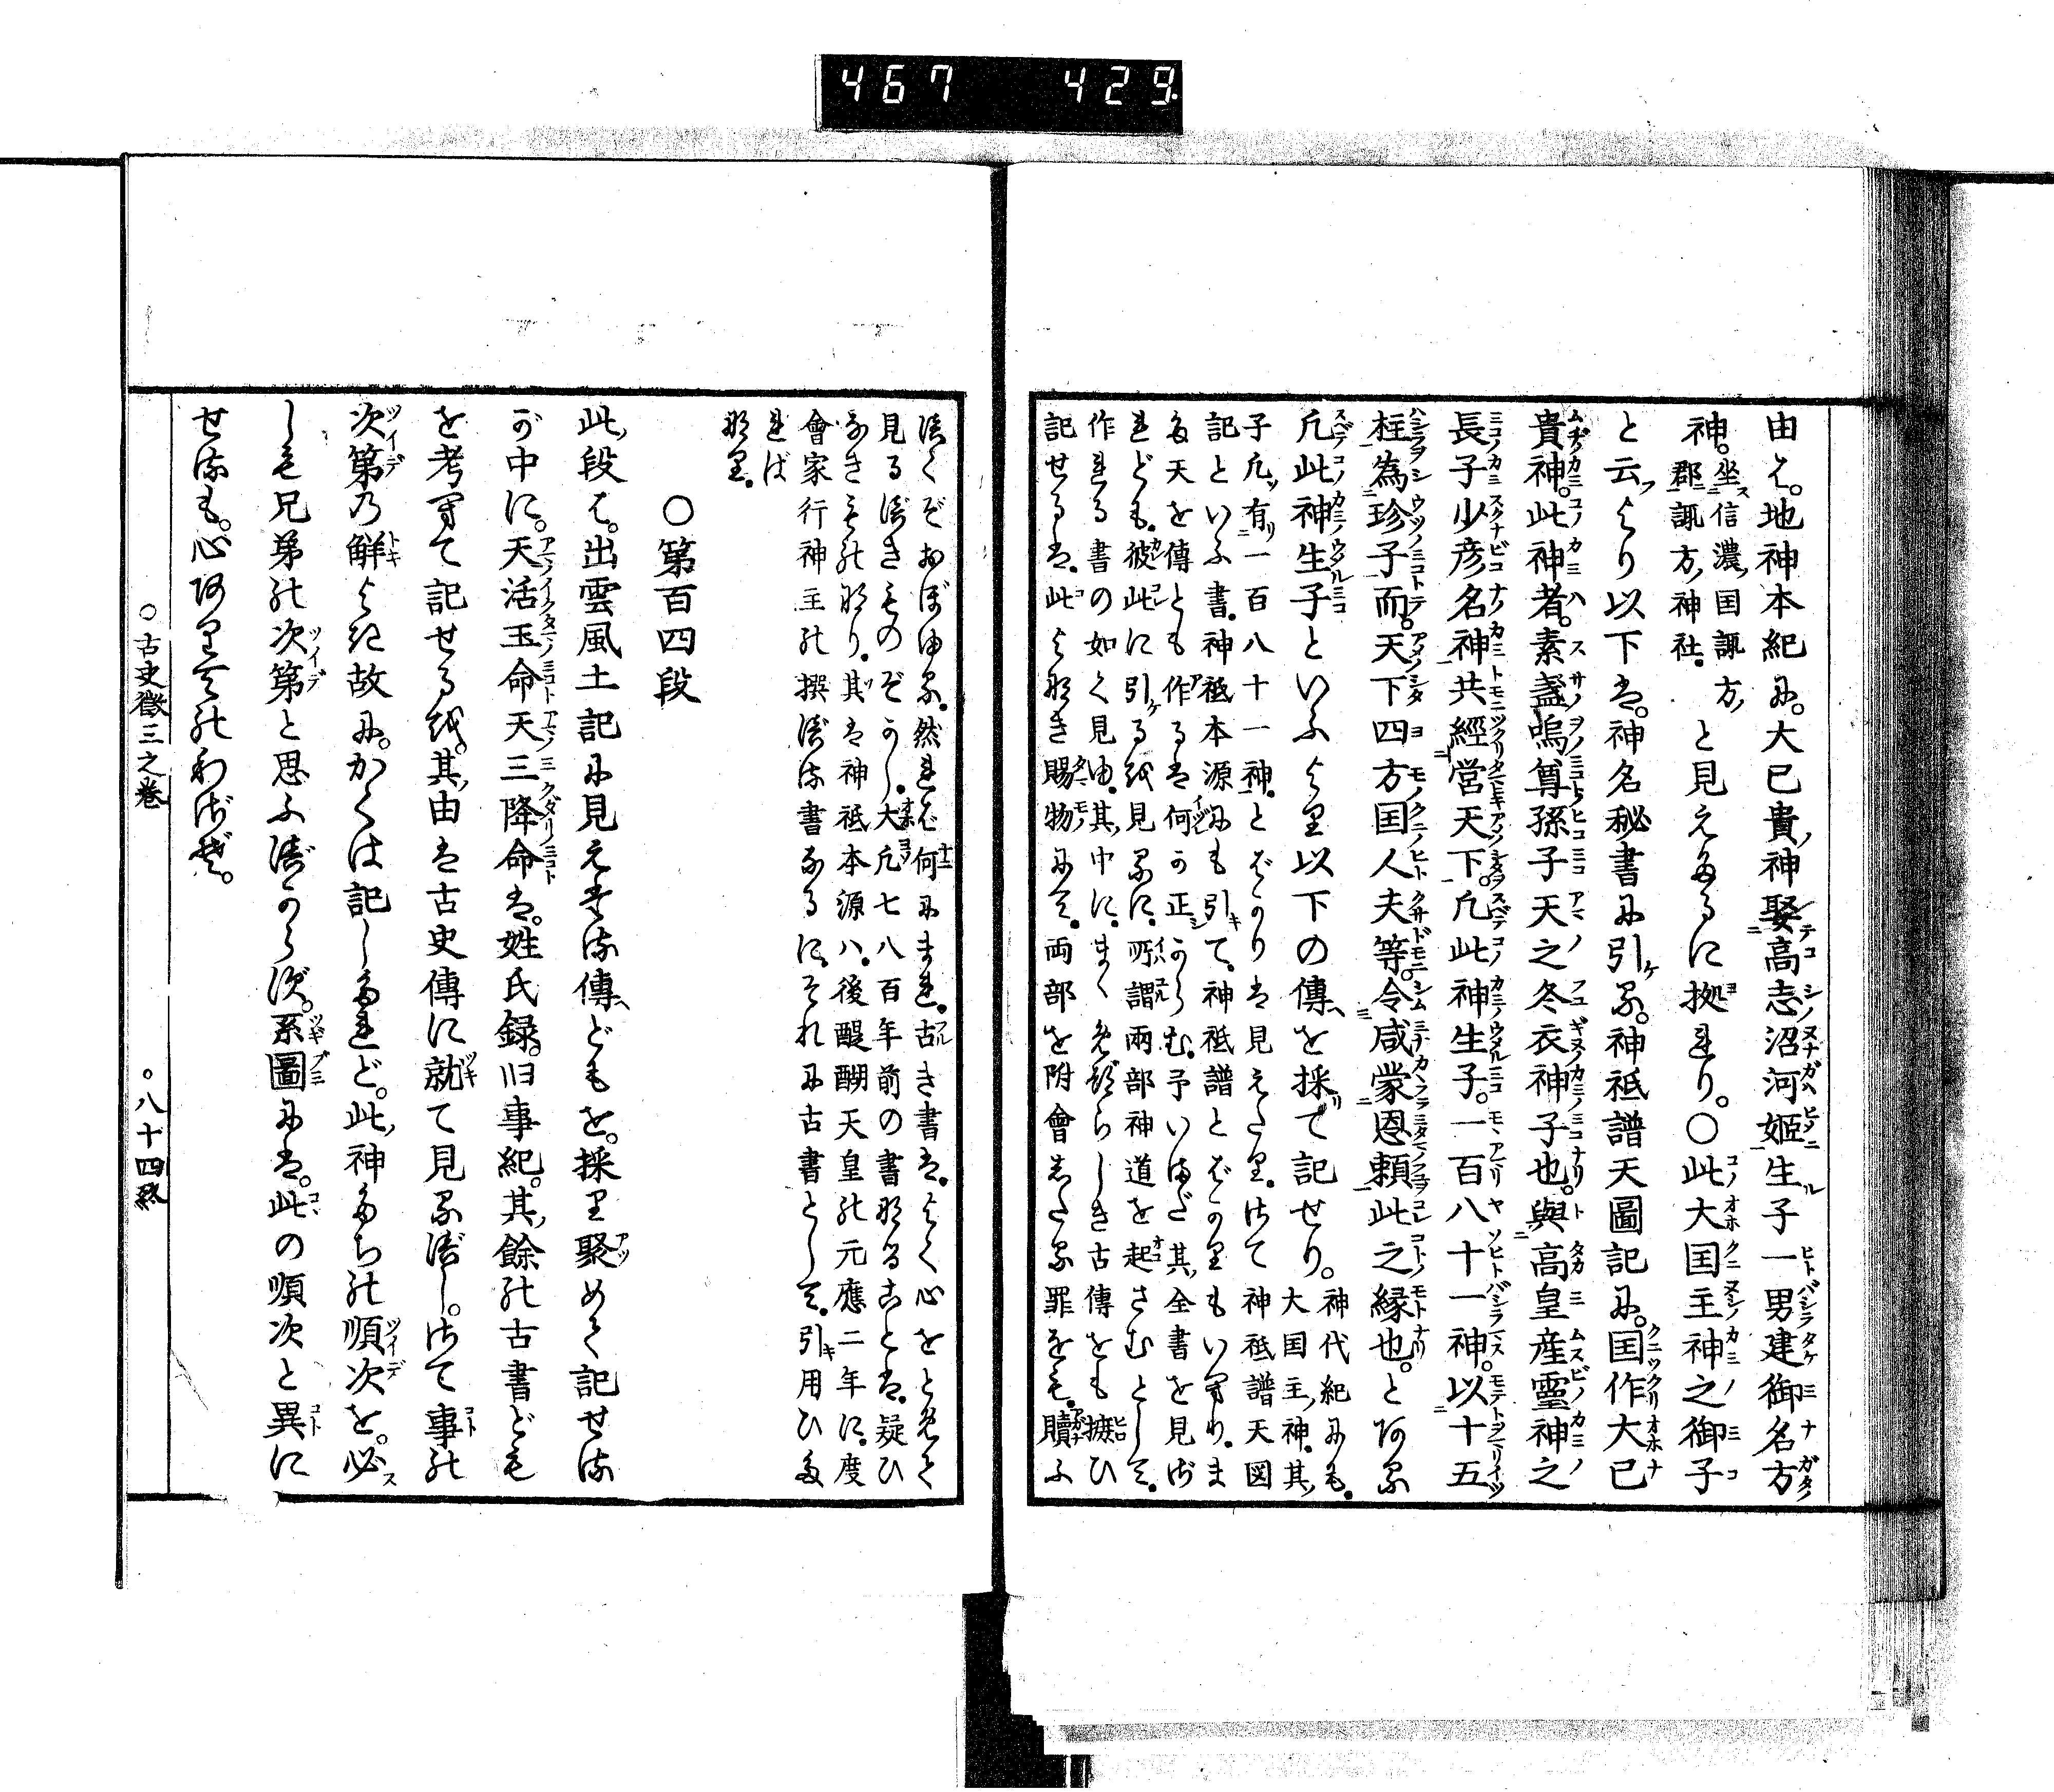 467 429
由は。地神本紀に。大已貴神娶高志沼河姫生子一男建御名方
神。坐信濃国諏方郡諏方神社。と見えたるに拠れり。〇此大国主神之御子
と云より以下は。神名秘書に引る。神祇譜天圖記に。国作大已
貴神。此神者。素盞嗚尊孫子天之冬衣神子也。與高皇産霊神之
長子少彦名神共經営天下。凡此神生子。一百八十一神。以十五
柱為珍子而。天下四方国人夫等。令咸蒙恩頼此之縁也。とある
凡此神生子といふより以下の傳を採て記せり。神代紀にも。大国主神。其
子凡有一百八十一神。とばかりは見えたり。さて神祇譜天図
記といふ書。神祇本源にも引て。神祇譜とばかりもいへり。ま
た天を傳とも作るは何か正しからむ。予いまだ其全書を見ざ
れども。彼此に引る を見るに。所謂両部神道を起さむとして。
作れる書の如く見ゆ。其中に。まゝめづらしき古傳をも摭ひ
記せるは。此よなき賜物にて。両部を附會したる罪をも。贖ふ
べくぞおぼゆる。然れど何にまれ。古き書は。よく心をとめて
見るべきものぞかし。大凡七八百年前の書なることは。疑ひ
なきものなり。其は神祇本源ハ。後醍醐天皇の元應二年に。度
會家行神主の撰べる書なるに。それに古書として。引用ひた
れば
なり。
〇第百四段
此段は。出雲風土記に見えたる傳どもを。採り聚めて記せる
が中に。天活玉命天三降命は。姓氏録。旧事紀。其餘の古書ども
を考へて記せる 。其由は古史傳に就て見るべし。さて事の
次第乃解よき故に。かくは記したれど。此神たちの順次を。必
しも兄弟の次第と思ふべからず。系圖には。此の順次と異に
せるも。心ありての わざぞ。
〇古史徴三之巻 〇八十四終